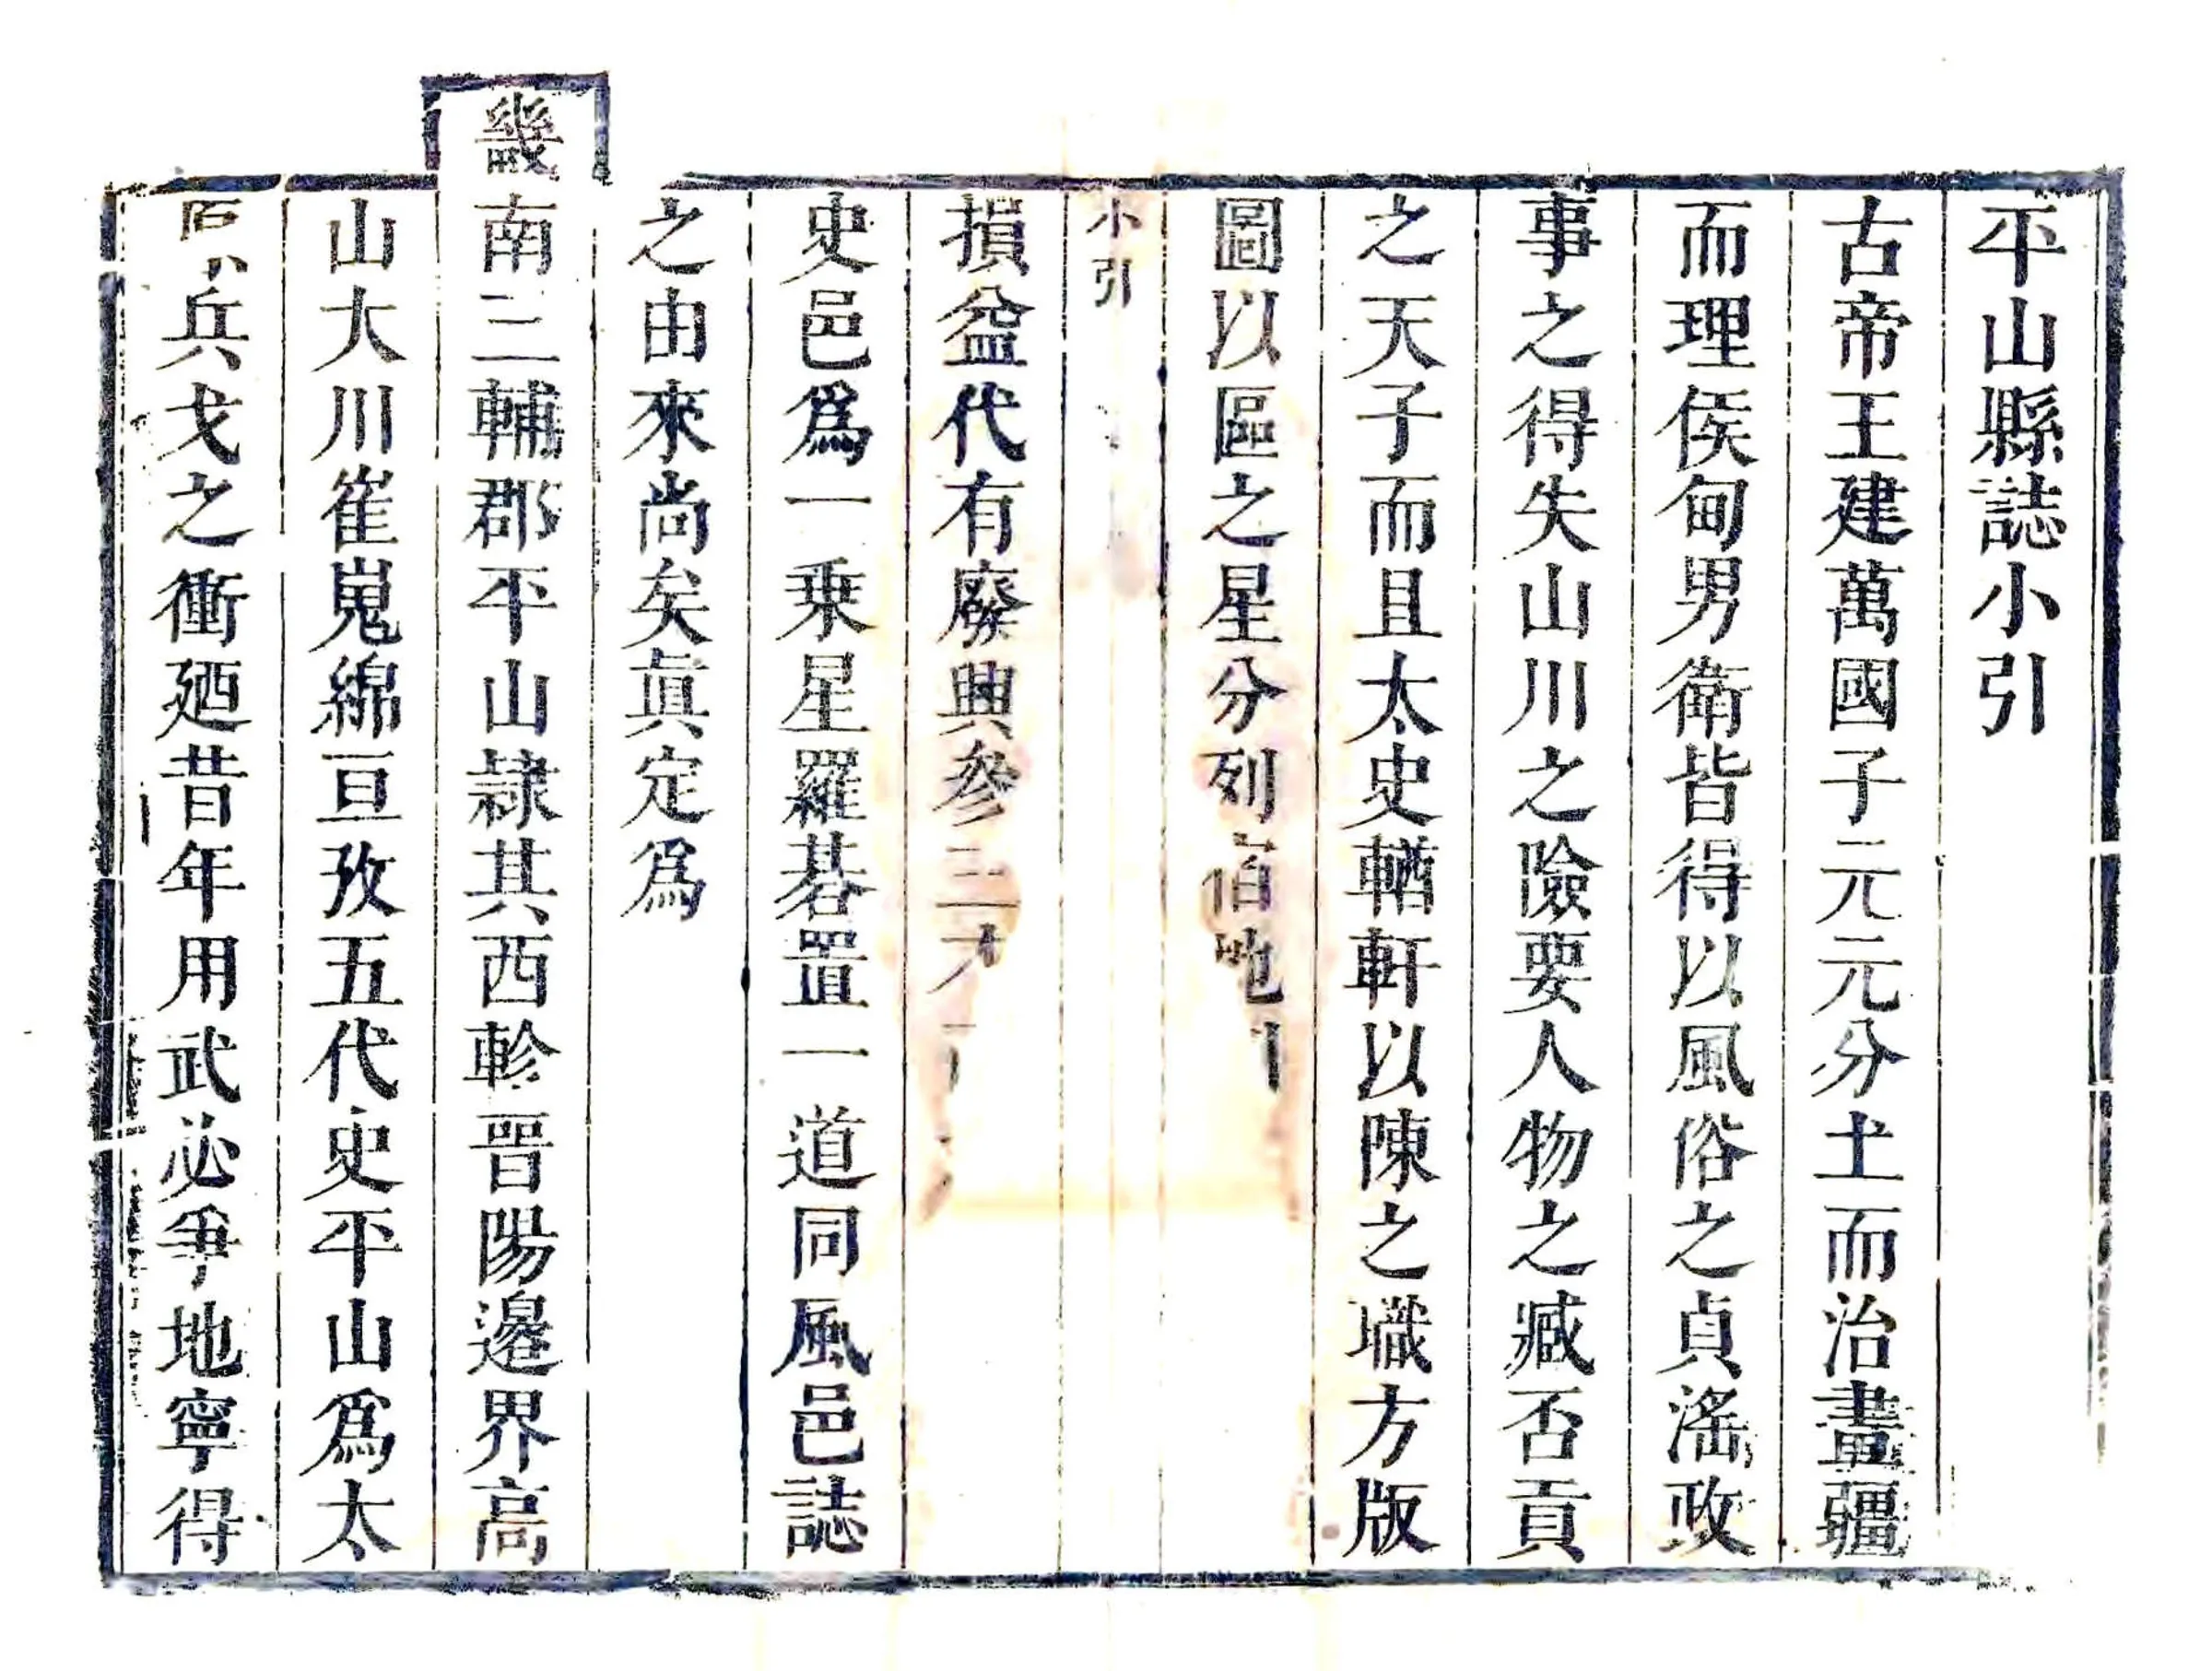 平山縣誌小引
古帝王建萬國子元元分土而治畫疆
而理侯甸男衛皆得以風俗之貞滛政
事之得失山川之險要人物之臧否貢
之天子而且太史輶軒以陳之職方版
圖以區之星分列宿地
小引
損益代有廢興參三才
史邑爲一乗星羅碁置一道同風邑誌
之由來尚矣眞定爲
畿南三輔郡平山隷其西軫晉陽邊界高
山大川崔嵬綿亘攷五代史平山爲太
原兵戈之衝廼昔年用武必爭地寧得